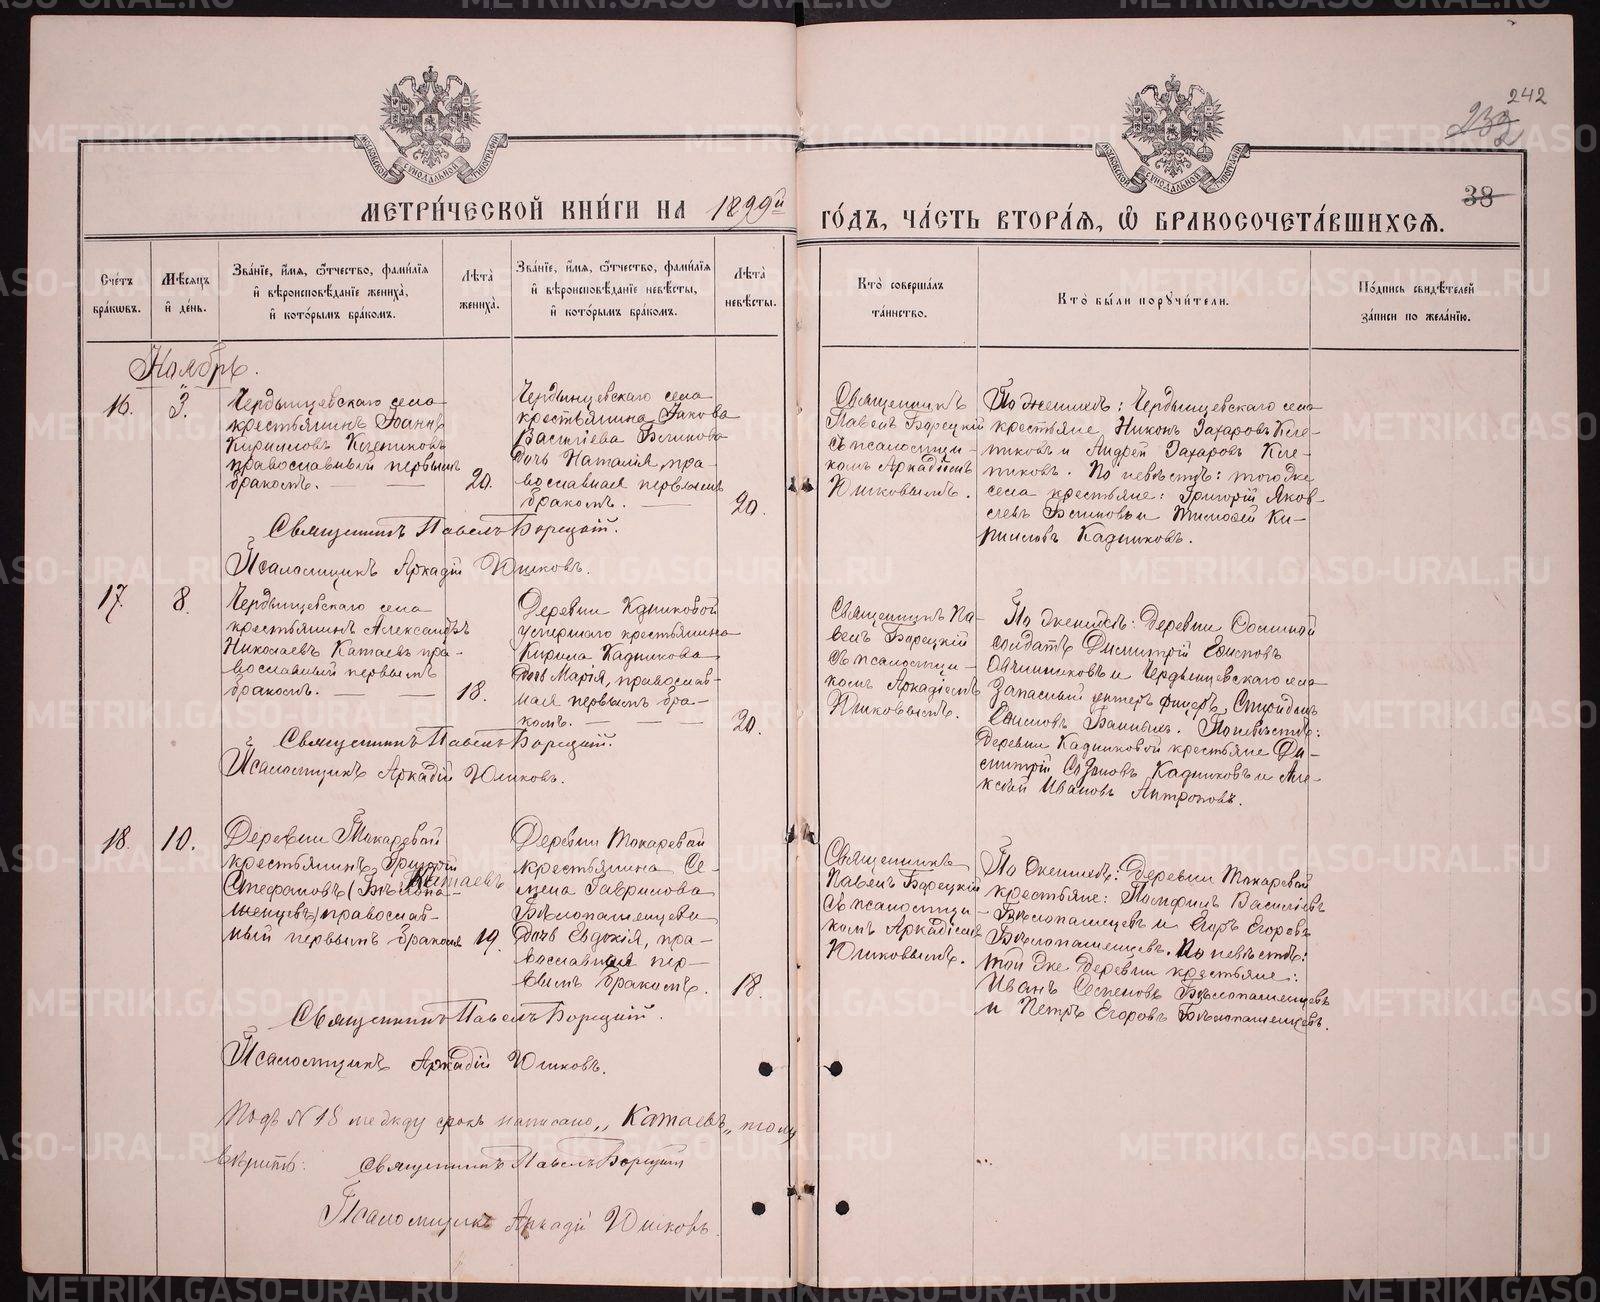 242
232
38
МОСКОВСКОЙ СѴНОДАЛЬНОЙ ТИПОГРАФІИ
МОСКОВСКОЙ СѴНОДАЛЬНОЙ ТИПОГРАФІИ
МЕТРИ́ЧЕСКОЙ КНИ́ГИ НА 1899й ГО́ДЪ, ЧА́СТЬ ВТОРА́Ѧ, Ѽ БРАКОСОЧЕТА́ВШИХСѦ.
Сче́тъ бра́кѡвъ.
Мѣ́сѧцъ и҆ де́нь.
Зва́нїе, и҆́мѧ, ѻ҆́тчество, фамилїѧ и҆ вѣроисповѣ́данїе жениха̀, и҆ кото́рымъ бра́комъ.
Лѣта̀ жениха̀.
Зва́нїе, и҆́мѧ, ѻ҆́тчество, фамилїѧ и҆ вѣроисповѣ́данїе невѣ́сты, и҆ кото́рымъ бра́комъ.
Лѣта̀ невѣ́сты.
Кто̀ соверша́лъ та́инство.
Кто̀ бы́ли порꙋчи́тели.
По́дпись свидѣ́телей за́писи по жела́нїю.
Ноябрь.
16.
3.
Чердынцевскаго села
крестьянинъ Іоаннъ
Кирилловъ Клепиковъ
православный первымъ
бракомъ.
20.
Чердынцевскаго села
крестьянина Іакова
Васильева Блинова
дочь Наталія, пра-
вославная первымъ
бракомъ.
20.
Священникъ
Павелъ Борецкій
съ псаломщи-
комъ Аркадіемъ
Юшковымъ.
По женихѣ: Чердынцевскаго села
крестьяне Никонъ Захаровъ Кле-
пиковъ и Андрей Захаровъ Кле-
пиковъ. По невѣстѣ: того же
села крестьяне: Григорій Яков-
левъ Блиновъ и Тимофей Ки-
рилловъ Кадниковъ.
Священникъ Павелъ Борецкій.
Псаломщикъ Аркадій Юшковъ.
17.
8.
Чердынцевскаго села
крестьянинъ Александръ
Николаевъ Катаевъ пра-
вославный первымъ
бракомъ.
18.
Деревни Кдниковой
умершаго крестьянина
Кирила Кадникова
дочь Марія, православ-
ная первымъ бра-
комъ.
20.
Священникъ Па-
велъ Борецкій
съ псаломщи-
комъ Аркадіемъ
Юшковымъ.
По женихѣ: деревни
солдатъ Димитрій
Овчинниковъ и Чердынцевскаго села
Запасный унтеръ
По невѣстѣ:
деревни Кадниковой крестьяне Ди-
митрій Кадниковъ и Але-
ксѣй Ивановъ Антроповъ.
Священникъ Павелъ Борецкій.
Псаломщикъ Аркадій Юшковъ.
18.
10.
Деревни Токаревой
крестьянинъ Григорій
Катаевъ
Стефановъ (Бѣлопа-
шенцевъ) православ-
ный первымъ бракомъ
19.
Деревни Токаревой
крестьянина Се-
мена Гаврилова
Бѣлопашенцева
дочь Евдокія, пра-
вославная пер-
вымъ бракомъ.
18.
Священникъ
Павелъ Борецкій
съ псаломщи-
комъ Аркадіемъ
Юшковымъ.
По женихѣ: деревни Токаревой
крестьяне: Памфилъ Василіевъ
Бѣлопашенцевъ и Егоръ Егоровъ
Бѣлопашенцевъ. По невѣстѣ:
той же деревни крестьяне:
Иванъ Семеновъ Бѣлопашенцевъ
и Петръ Егоровъ Бѣлопашенцевъ.
Священникъ Павелъ Борецкій.
Псаломщикъ Аркадій Юшковъ.
Подъ № 18 между срокъ написано „Катаевъ„ тому
вѣрить: Священникъ Павелъ Борецкій
Псаломщикъ Аркадій Юшковъ.
METRIKI.GASO-URAL.RU